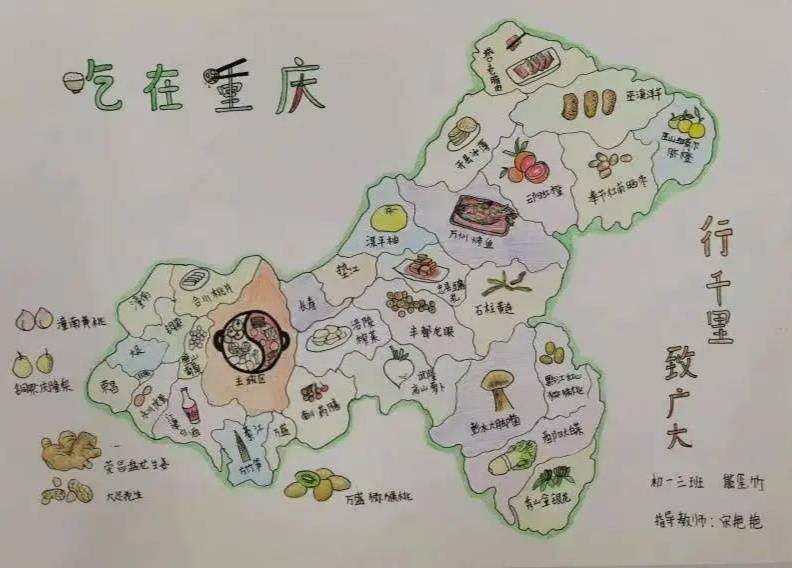 吃在重庆
城口老腊肉
巫溪洋芋
巫山纽荷尔
脐橙
开县冰薄
云阳红橙
奉节
梁平柚
万州烤鱼
行千里
致广大
垫江
忠县
石柱黄连
潼南
合川桃片
长寿
涪陵
榨菜
丰都龙眼
潼南黄桃
铜梁
葡萄
主城区
武隆
高山萝卜
黔江
猕猴桃
荣昌
南川药膳
彭水大脚菌
綦江
方竹笋
万盛
酉阳
秀山金银花
荣昌盘龙生姜
大足花生
万盛猕猴桃
初一三班
指导教师：宋艳艳